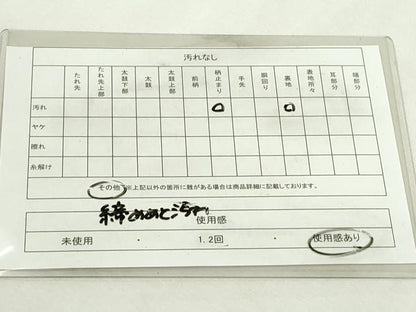 汚れなし
たれ先 たれ先上部 太鼓下部 太鼓 太鼓上部 前柄 柄止まり 手先 胴回り 裏地 表地所々 耳部分 端部分
汚れ ○ ○
ヤケ
擦れ
糸解け
その他 ※上記以外の箇所に難がある場合は商品詳細に記載しております。
締めあと汚れ
使用感
未使用 ・ 1.2回 ・ 使用感あり